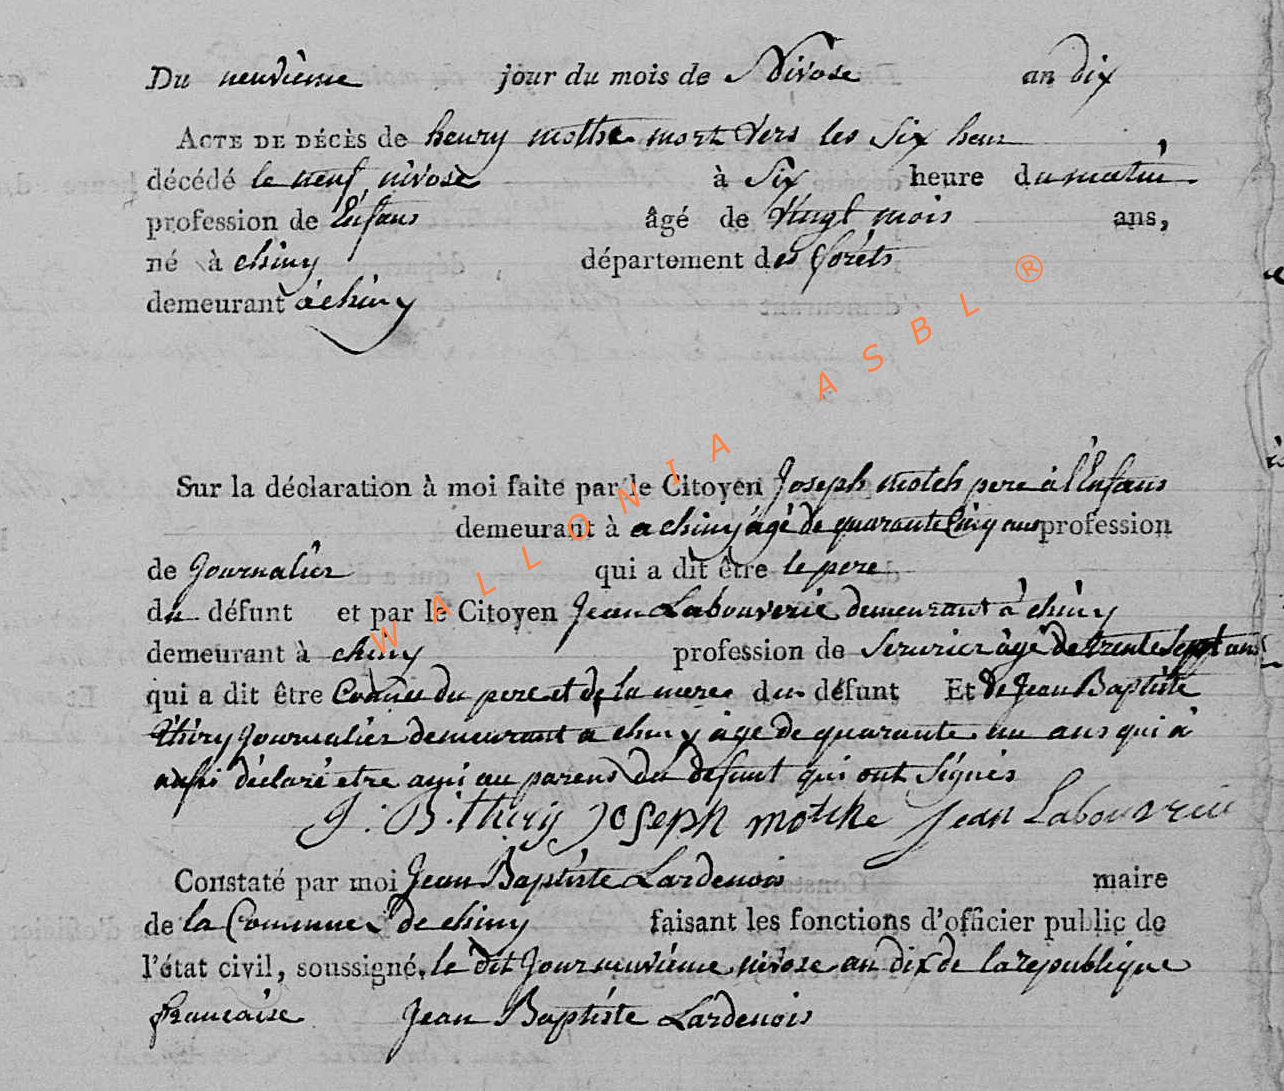 Du neuvieme jour du mois de Nivose an dix
ACTE DE DÉCÈS de henry mothe mort vers les six heur
décédé le neuf nivose à six heure du matin
profession de Enfans âgé de vingt mois ans,
né à chiny département des forêts
demeurant a chiny
Sur la déclaration à moi faite par le Citoyen Joseph motch pere a l'Enfans
demeurant à a chiny agé de quarante Cinq ans profession
de Journalier qui a dit être le pere
du défunt et par le Citoyen Jean Labouverie demeurant a chiny
demeurant à chiny profession de serurier âgé de trente sept ans
qui a dit être Connu du pere et de la mere du défunt Et de Jean Baptiste
thiry Journalier demeurant a chiny age de quarante un ans qui a
aussi déclaré etre ami au parens du defunt qui ont signés
J. B. thiry Joseph motche Jean Labouverie
Constaté par moi Jean Baptiste Lardenois maire
de la Commune de chiny faisant les fonctions d'officier public de
l'état civil, soussigné, le dit Jour neuvieme nivose an dix de la republique
francaise Jean Baptiste Lardenois
WALLONIA ASBL ®